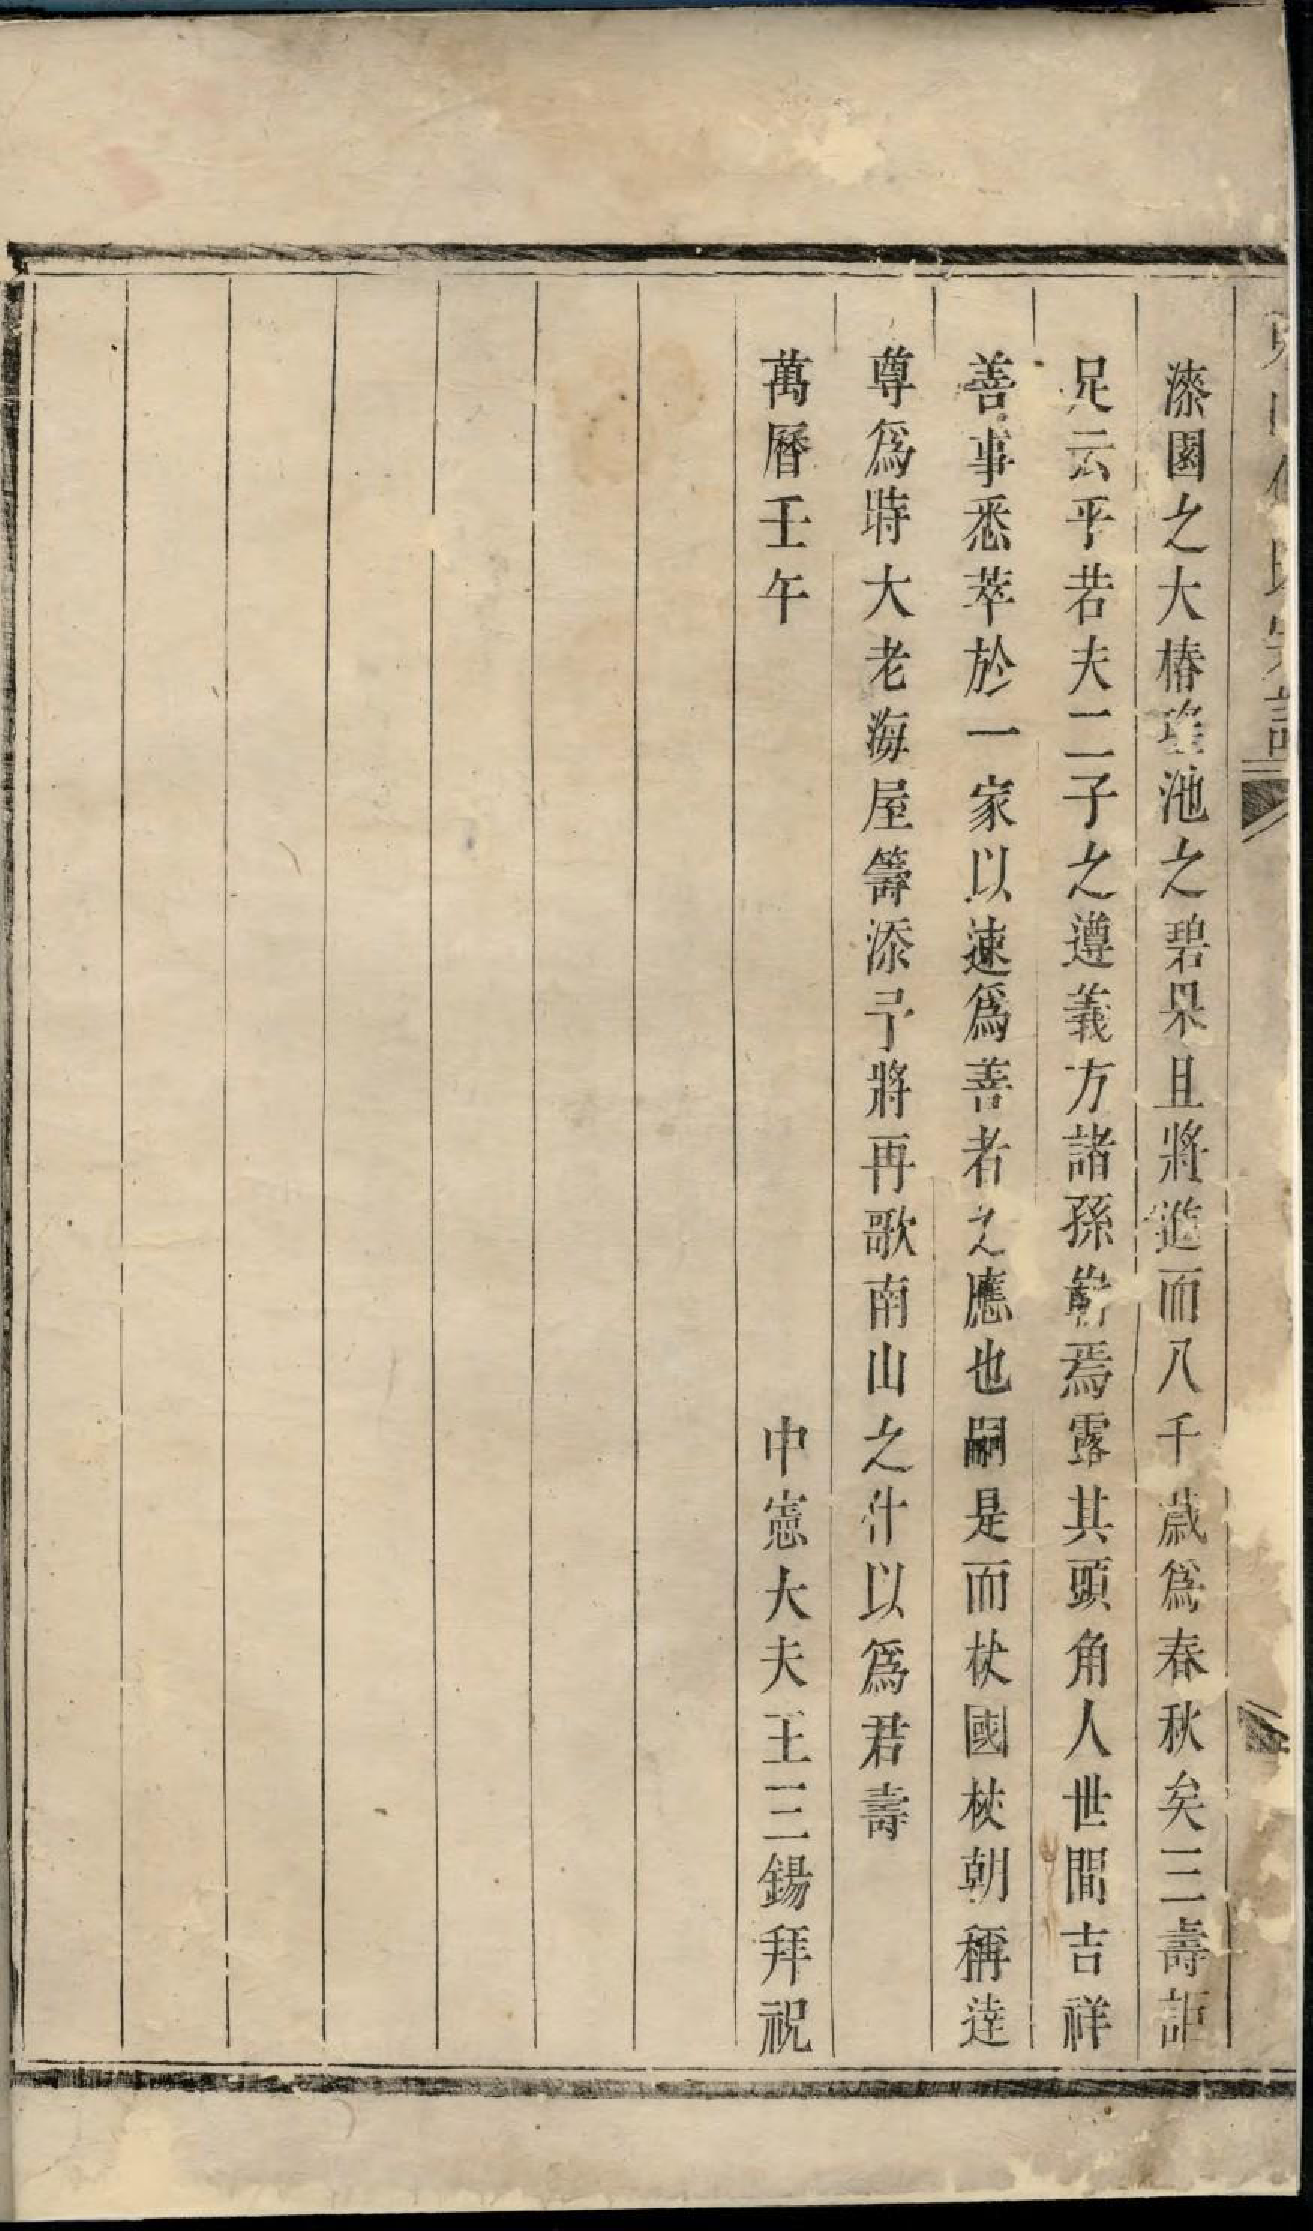 漆園之大椿瑤池之碧果且將邀而八千歳爲春秋矣三壽詎
足云乎若夫二子之遵義方諸孫嶄焉露其頭角人世間吉祥
善事悉萃於一家以速爲善者之應也嗣是而杖國杖朝稱達
尊爲時大老海屋籌添予將再歌南山之什以爲君壽
萬曆壬午　中憲大夫王三錫拜祝